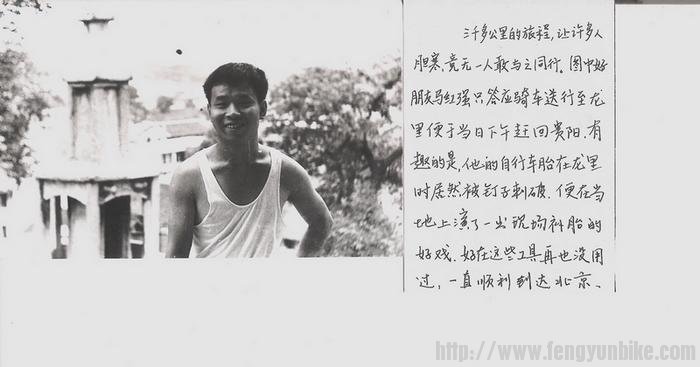 三千多公里的旅程,让许多人
胆寒,竟无一人敢与之同行。图中好
朋友马红强只答应骑车送行至龙
里便于当日下午赶回贵阳.有
趣的是,他的自行车胎在龙里
时居然被钉子刺破.便在当
地上演了一出现场补胎的
好戏.好在这些工具再也没用
过,一直顺利到达北京、
http://www.fengyunbike.com